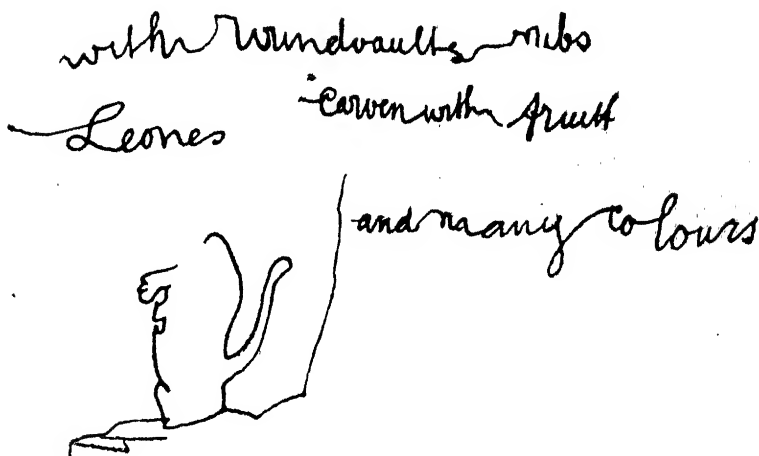 with Wundvaults ribs
Leones carven with fruitt
and many colours